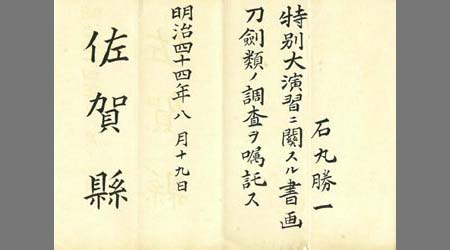 石丸勝一
特別大演習ニ關スル書画
刀劍類ノ調査ヲ嘱託ス
明治四十四年八月十九日
佐賀縣